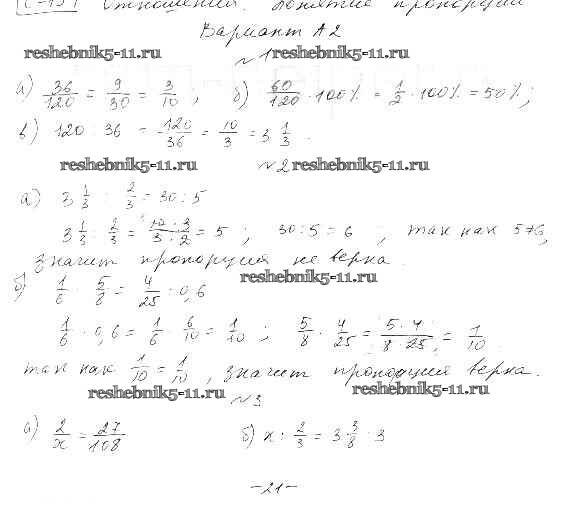 С-15. Отношения. Понятие пропорции
Вариант А2
reshebnik5-11.ru №1 reshebnik5-11.ru
а) 36/120 = 9/30 = 3/10 ; б) 60/120 · 100% = 1/2 · 100% = 50%;
в) 120 : 36 = 120/36 = 10/3 = 3 1/3 .
reshebnik5-11.ru №2 reshebnik5-11.ru
а) 3 1/3 : 2/3 = 30 : 5
3 1/3 : 2/3 = 10 · 3/3 · 2 = 5 ; 30 : 5 = 6 ; так как 5≠6,
значит пропорция не верна.
reshebnik5-11.ru
б) 1/6 : 5/8 = 4/25 : 0,6
1/6 · 0,6 = 1/6 · 6/10 = 1/10 ; 5/8 · 4/25 = 5 · 4/8 · 25 = 1/10
так как 1/10 = 1/10 , значит пропорция верна.
reshebnik5-11.ru №3 reshebnik5-11.ru
а) 2/x = 27/108 б) x : 2/3 = 3 3/8 : 3
-21-